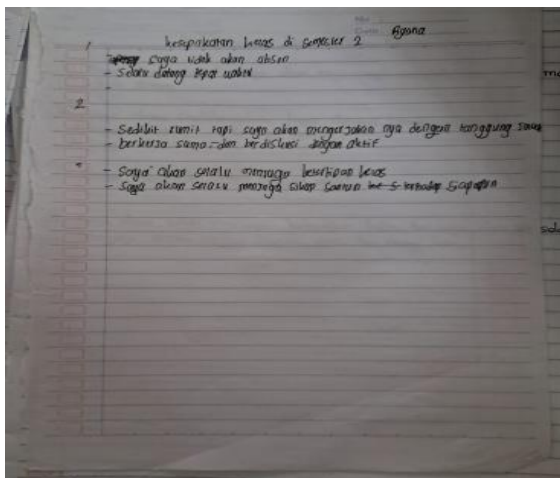 Ayana
1 kesepakatan kelas di semester 2
saya tidak akan absen
- Selalu datang tepat waktu
-
2
- Sedikit rumit tapi saya akan mengerjakan nya dengan tanggung jawab
- berkerja sama dan berdiskusi dengan aktif
- Saya akan selalu menjaga kesertipan kelas
- Saya akan selalu menjaga sikap santun terhadap siapapun